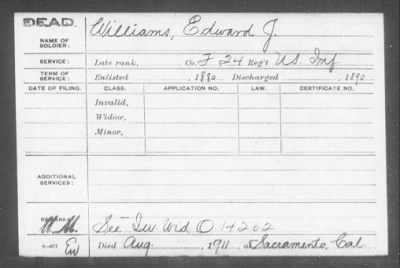 DEAD.
NAME OF SOLDIER: Williams, Edward J.
SERVICE: Late rank, Co. F 24 Reg't U.S. Inf
TERM OF SERVICE: Enlisted , 1880 Discharged , 1890
DATE OF FILING. CLASS. APPLICATION NO. LAW. CERTIFICATE NO.
Invalid,
Widow,
Minor,
ADDITIONAL SERVICES:
REMARKS: See Inv Wrd O 14202
Died Aug , 1911, at Sacramento, Cal